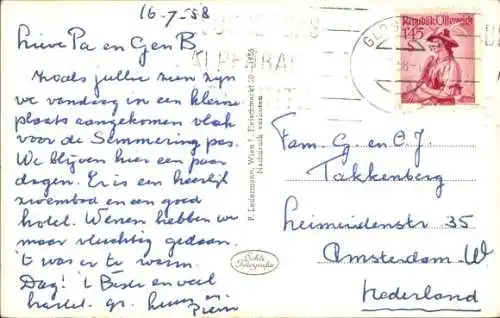 16-7-58
Lieve Pa en Gen B
Zoals jullie zien zijn
we vandaag in een kleine
plaats aangekomen vlak
voor de Semmering pas.
We blijven hier een paar
dagen. Er is een heerlijk
zwembad en een goed
hotel. Wenen hebben we
maar vluchtig gedaan.
't was er te warm.
Dag! 't Beste en veel
hartel. gr.
P. Ledermann, Wien 1, Fleischmarkt 20 - 1956
Nachdruck verboten
Echte
Fotografie
Republik Österreich
1.45
Fam. G. en C.J.
Takkenberg
Leimeidenstr 35
Amsterdam-W
Nederland